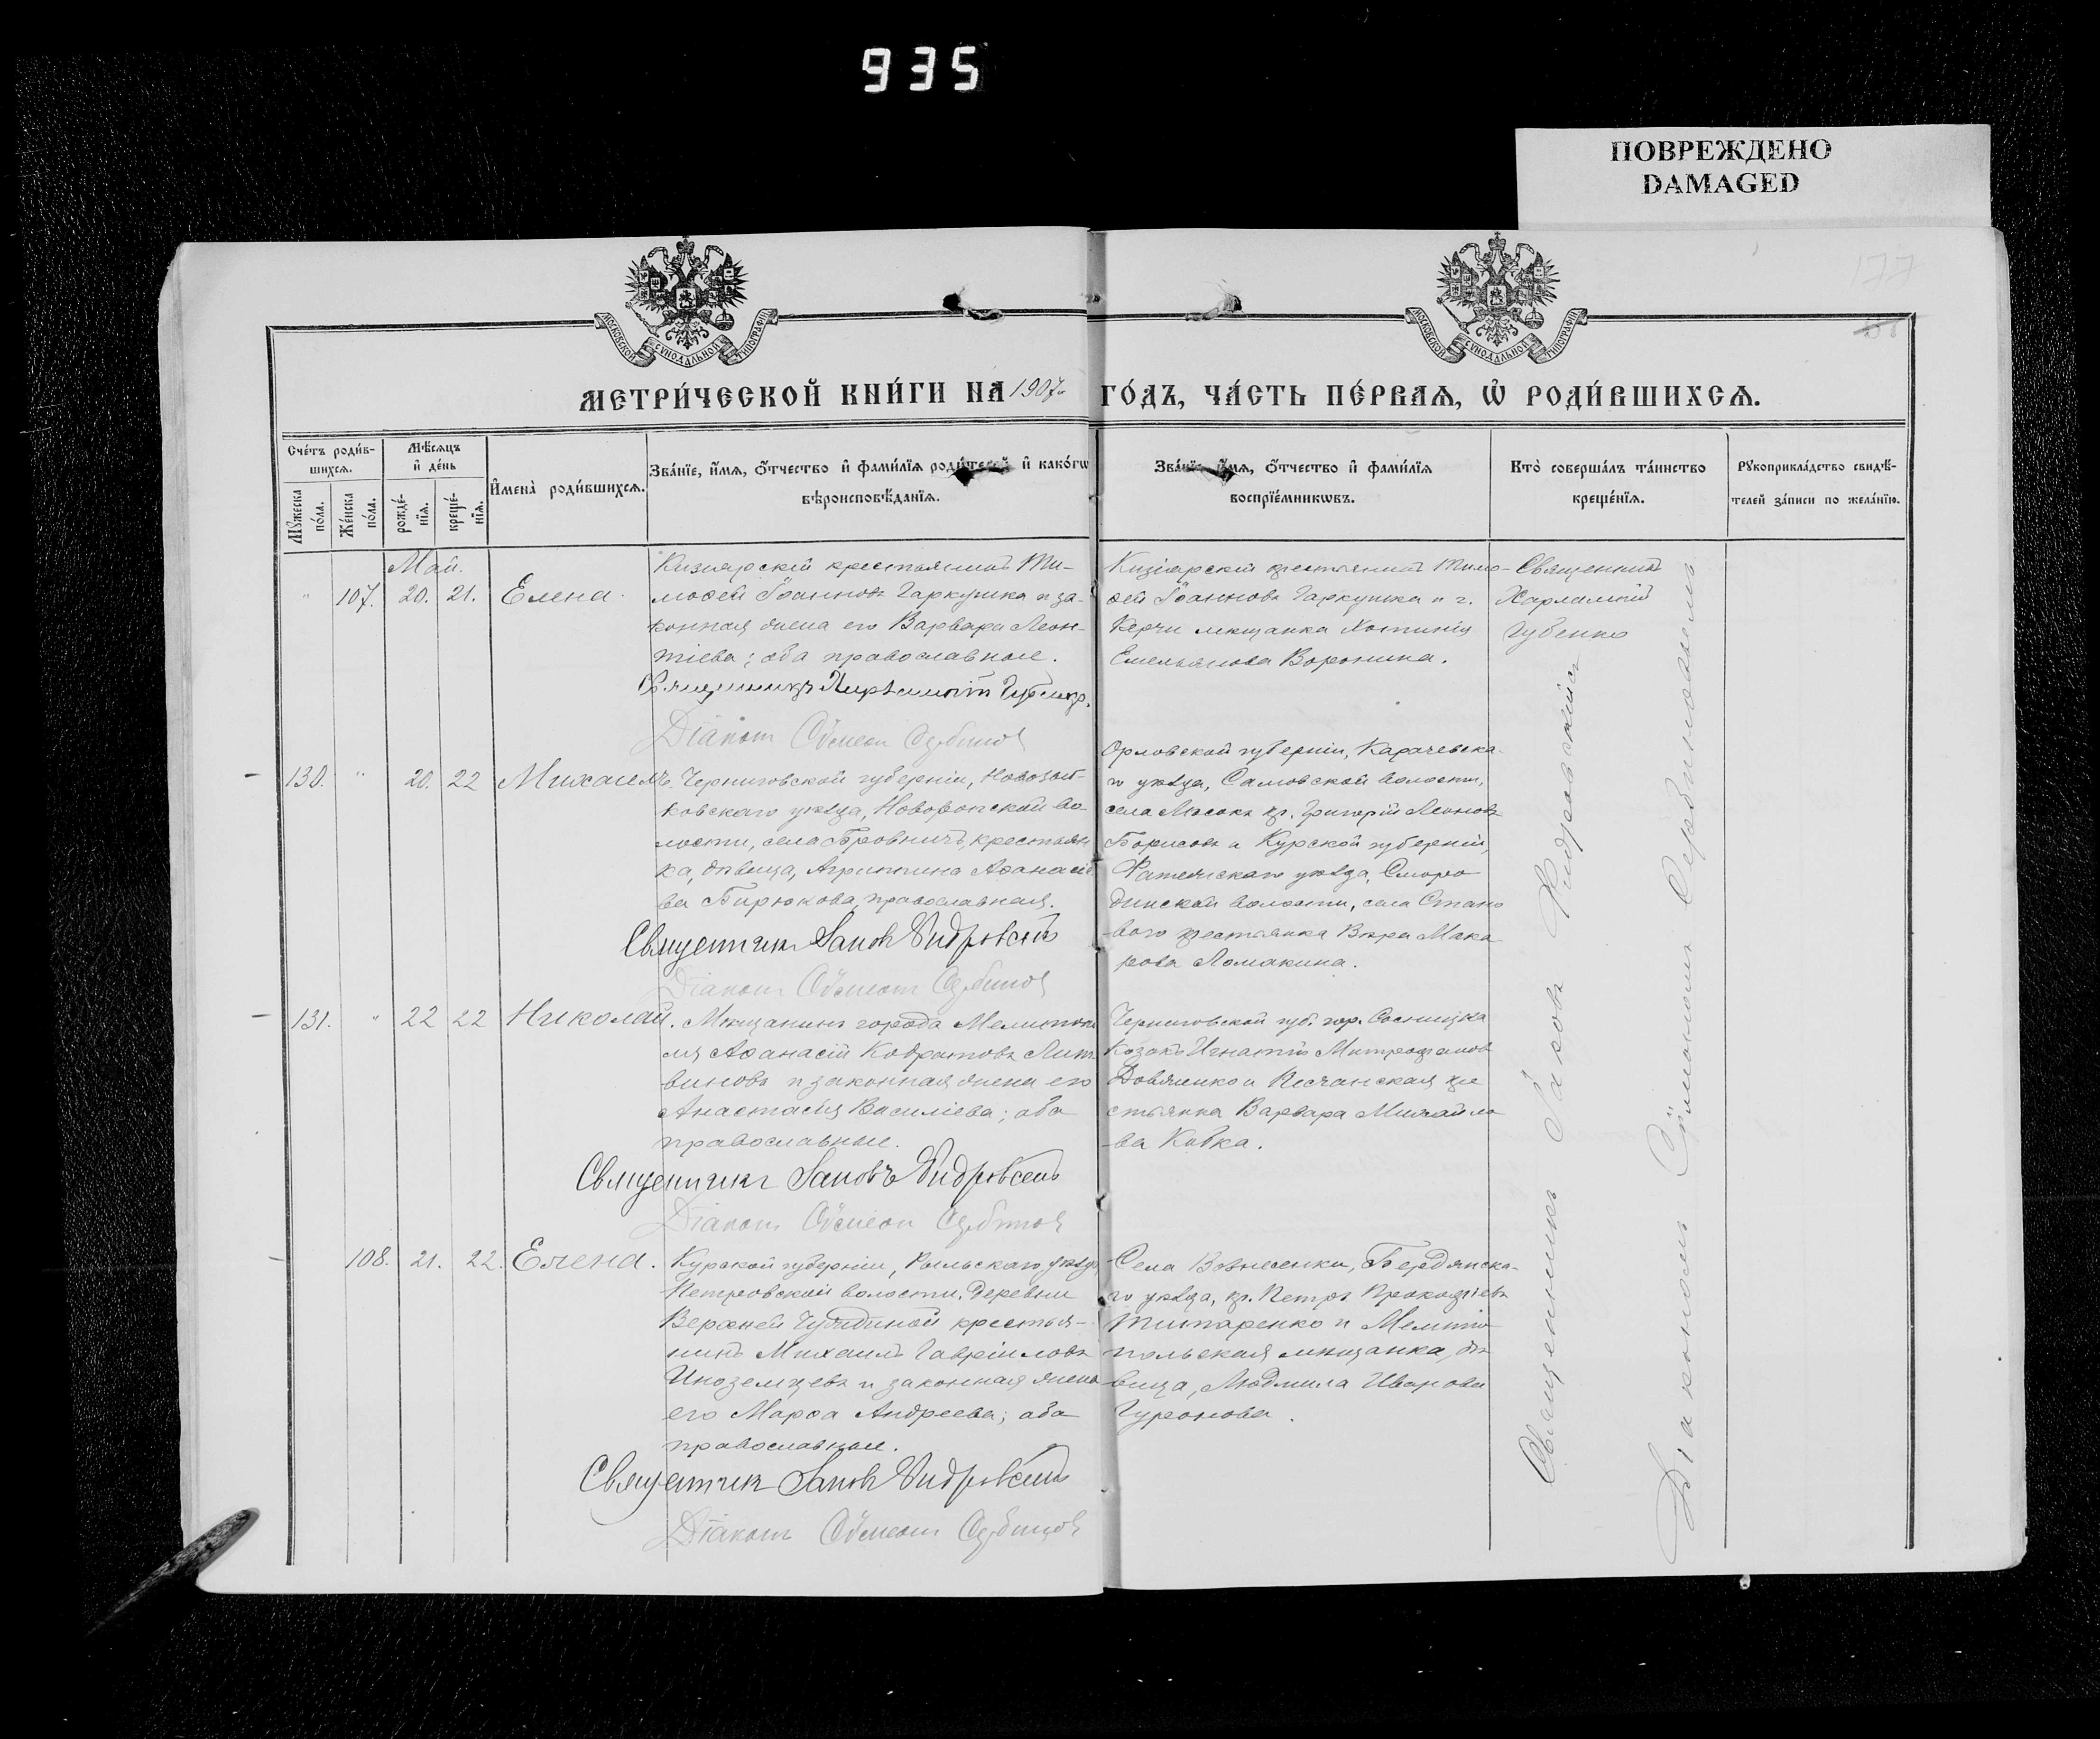 935
ПОВРЕЖДЕНО
DAMAGED
177
МОСКОВСКОЙ СѴНОДАЛЬНОЙ ТИПОГРАФІИ
МОСКОВСКОЙ СѴНОДАЛЬНОЙ ТИПОГРАФІИ
МЕТРИ́ЧЕСКОЙ КНИ́ГИ НА 1907 ГО́ДЪ, ЧА́СТЬ ПЕ́РВАѦ, Ѡ҆ РОДИ́ВШИХСѦ.
Сче́тъ роди́в-
шихсѧ.
Мꙋ́жеска по́ла.
Же́нска по́ла.
Мѣ́сѧцъ и҆ де́нь
рожде́-нїѧ.
креще́-нїѧ.
И҆мена̀ роди́вшихсѧ.
Зва́нїе, и҆́мѧ, ѻ҆́тчество и҆ фами́лїѧ роди́телей и҆ како́гѡ
вѣроисповѣ́данїѧ.
Зва́нїе, и҆́мѧ, ѻ҆́тчество и҆ фами́лїѧ
воспрїе́мникѡвъ.
Кто̀ соверша́лъ та́инство
креще́нїѧ.
Рꙋкоприкла́дство свидѣ́-
телей за́писи по жела́нїю.
Май.
" 107. 20. 21. Елена.
Кизіярскій крестьянинъ Ти-
моѳей Іоанновъ Гаркушка и за-
конная жена его Варвара Леон-
тіева; оба православные.
Священникъ Харлампій Губенко.
Діаконъ Сѵмеонъ
Кизіярскій крестьянинъ Тимо-
ѳей Іоанновъ Гаркушка и г.
Керчи мѣщанка Хотинія
Емельянова Воронина.
Священникъ
Харлампій
Губенко
130. " 20. 22 Михаилъ
Черниговской губерніи, Новозыб-
ковскаго уѣзда, Новоропской во-
лости, села Бровничъ, крестьян
ка, дѣвица, Агриппина Аѳанасіе
ва Бирюкова, православная.
Священникъ Іаковъ
Діаконъ Сѵмеонъ
Орловской губерніи, Карачевска-
го уѣзда, Самовской волости,
села кр. Григорій Леоновъ
Борисовъ и Курской губерніи,
Фатежскаго уѣзда, Сморо
динской волости, села Стано
-вого крестьянка Вѣра Мака
рова Ломакина.
131. " 22 22 Николай.
Мѣщанинъ города Мелитопо
ля Аѳанасій Кодратовъ Лит-
виновъ и законная жена его
Анастасія Василіева; оба
православные.
Священникъ Іаковъ
Діаконъ Сѵмеонъ
Черниговской губ. гор. Сосницка
Козакъ Игнатій Митрофановъ
Довженко и Песчанская кре
стьянка Варвара Михайло
-ва Кобка.
108. 21. 22. Елена.
Курской губерніи, Рыльскаго уѣзда,
Петровской волости, деревни
Верхней крестья-
нинъ Михаилъ Гавріиловъ
Иноземцевъ и законная жена
его Марѳа Андреева; оба
православные.
Священникъ Іаковъ
Діаконъ Сѵмеонъ
Села Вознесенки, Бердянска-
го уѣзда, кр. Петръ Прокофіевъ
Титаренко и Мелито-
польская мѣщанка, дѣ
вица, Людмила Иванова
Гуронова.
Священникъ Іаковъ
Діакономъ Сѵмеономъ